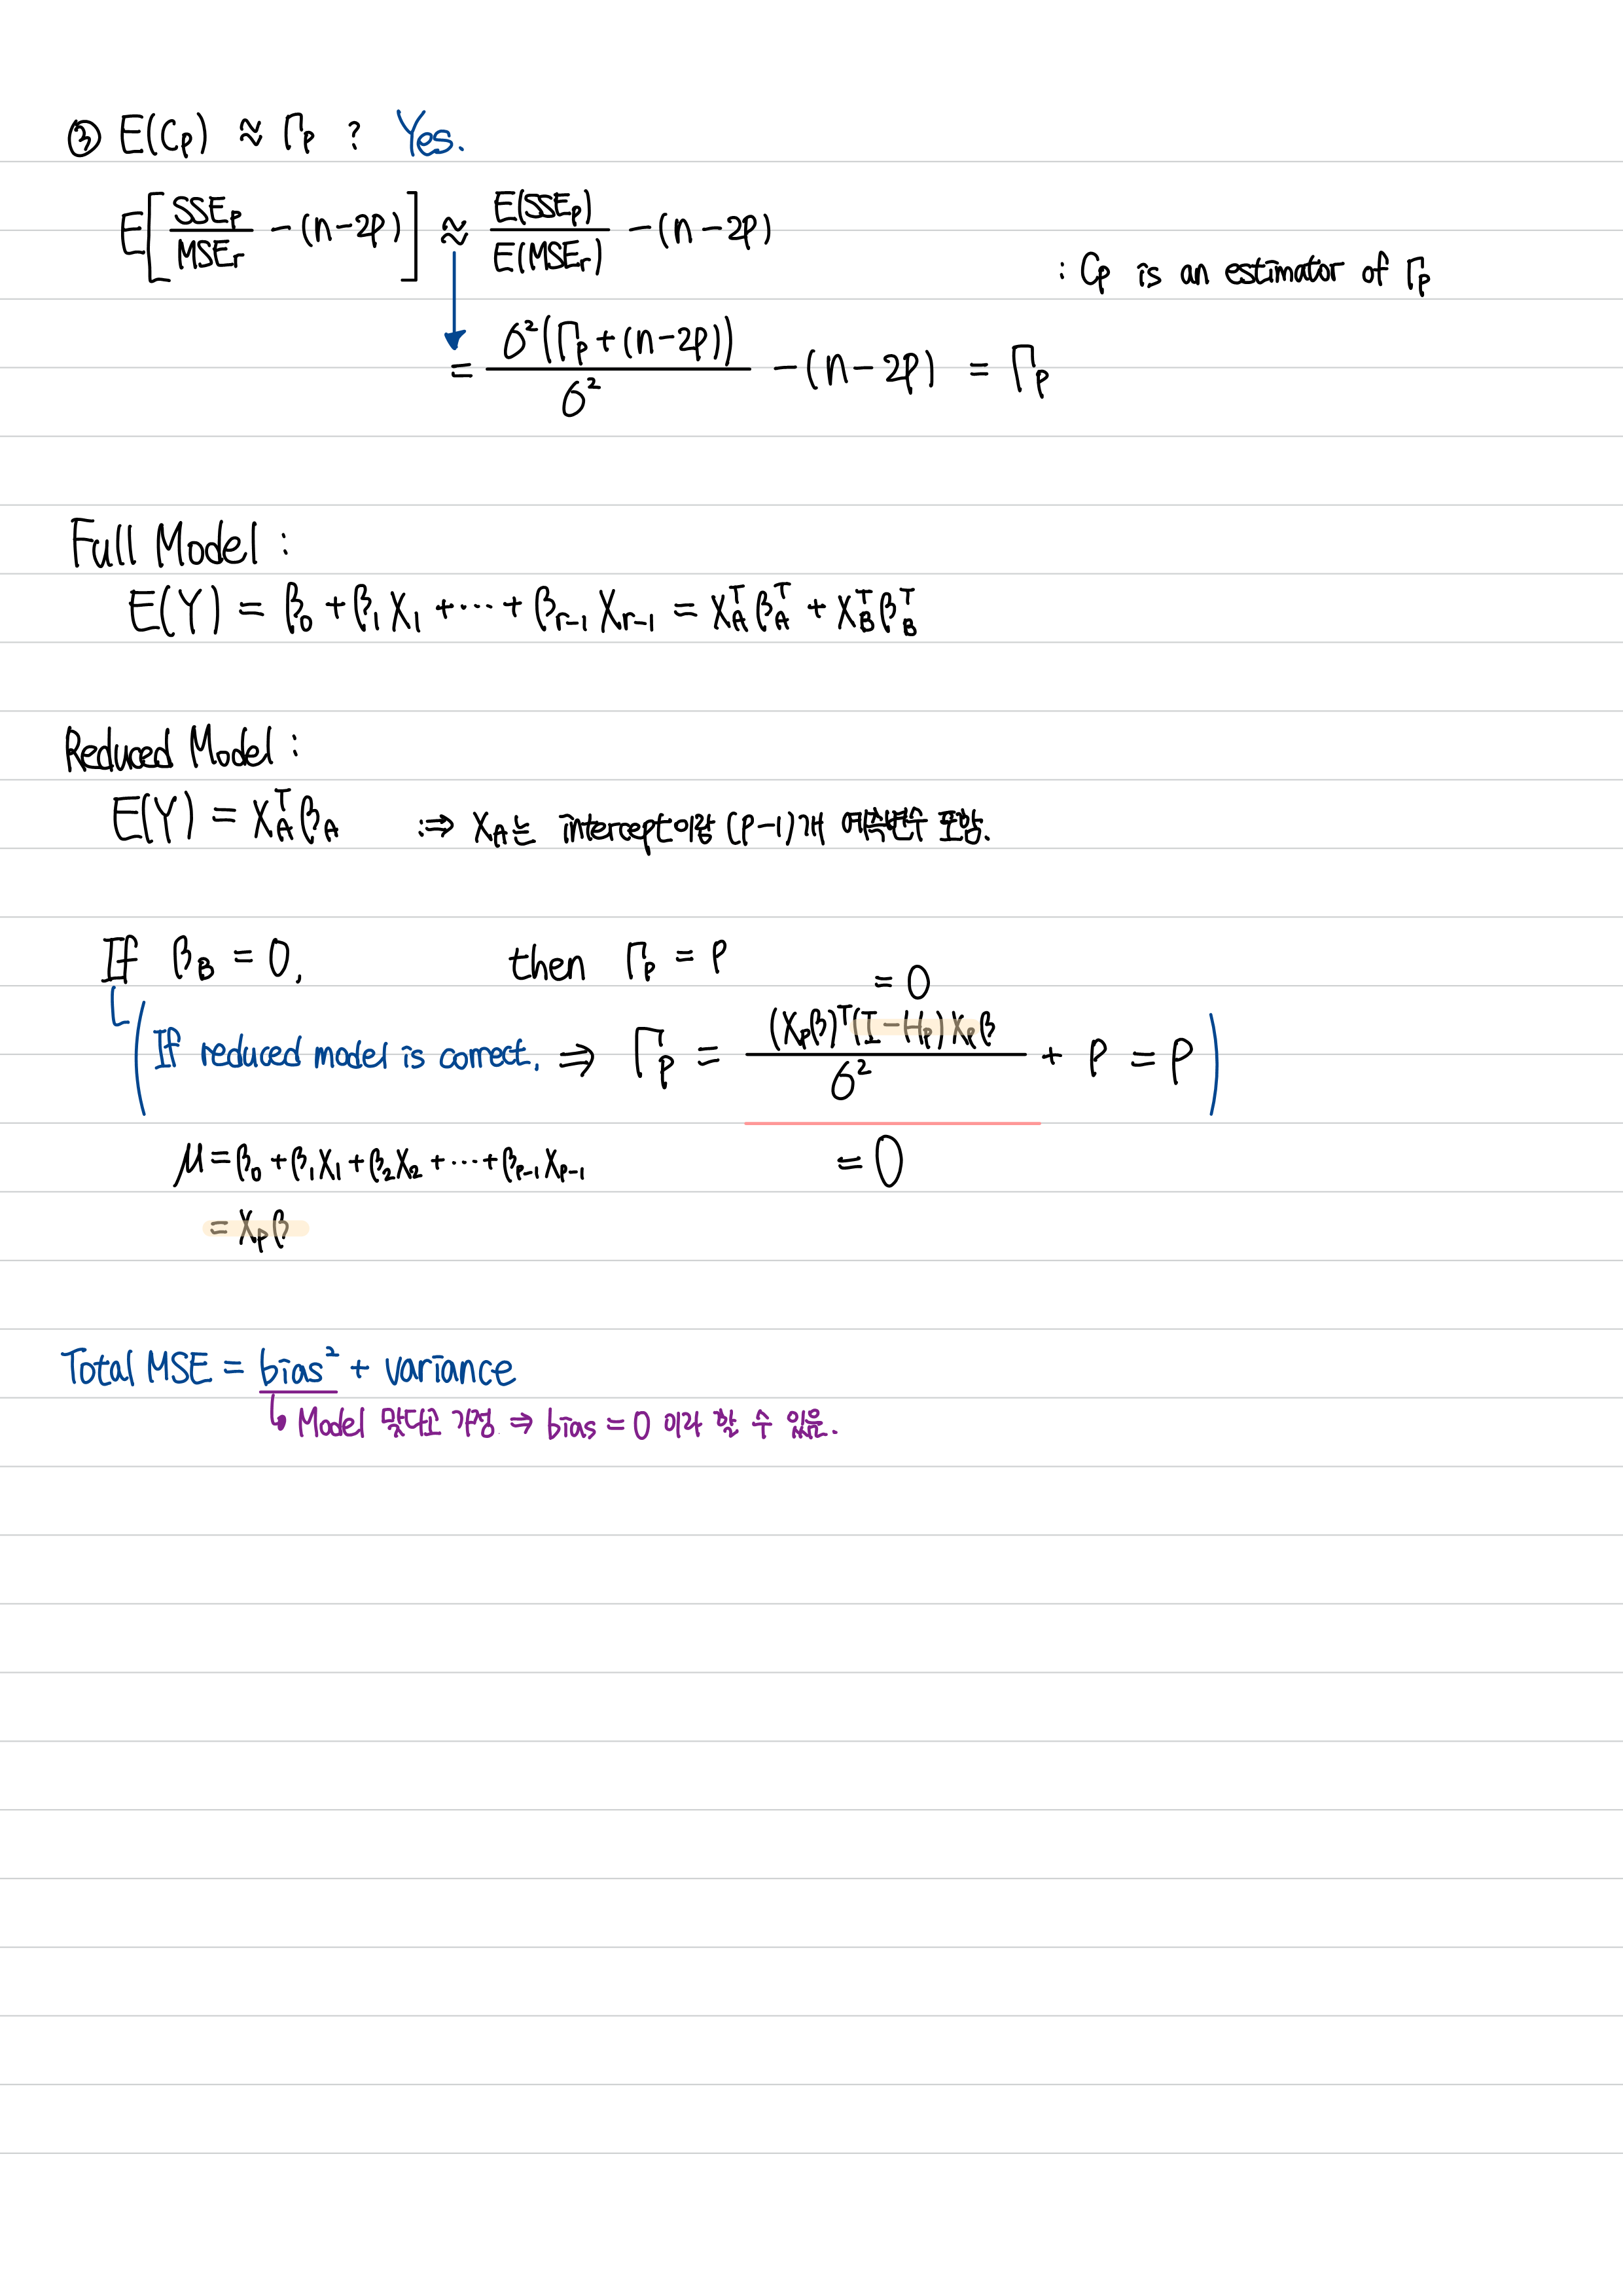 ③ E(Cp) ≈ Γp ? Yes.
E[SSEp/MSEr - (n-2p)] ≈ E(SSEp)/E(MSEr) - (n-2p)
: Cp is an estimator of Γp
= σ²(Γp + (n-2p))/σ² - (n-2p) = Γp
Full Model :
E(Y) = β₀ + β₁X₁ + ⋯ + βr-1 Xr-1 = X_A^T β_A^T + X_B^T β_B^T
Reduced Model :
E(Y) = X_A^T β_A :⇒ X_A는 intercept이랑 (p-1)개 예측변수 포함.
If β_B = 0, then Γp = P
= 0
(If reduced model is correct. ⇒ Γp = (Xpβ)^T(I-Hp)Xpβ/σ² + P = P)
μ = β₀ + β₁X₁ + β₂X₂ + ⋯ + βp-1 Xp-1 = 0
= Xpβ
Total MSE = bias² + variance
↳ Model 맞단 가정 ⇒ bias = 0 이라 할 수 있음.